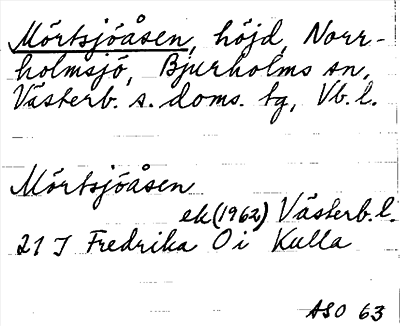 Mörtsjöåsen, höjd, Norr-
holmsjö, Bjurholms sn,
Västerb. s. doms. tg, Vb. l.
Mörtsjöåsen
ek (1962) Västerb. l.
21 J Fredrika O i Kulla
ASO 63